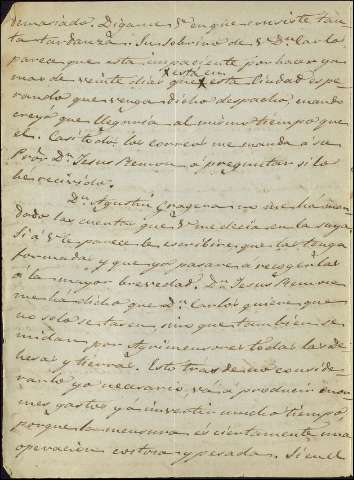 demasiado. Digame Vd en que consiste tan-
ta tardanza. Su sobrino de Vd Dn Carlos
parece que está impaciente por hacer ya
mas de veinte dias que está en esta Ciudad espe-
rando que venga dicho despacho, cuando
creyó que llegaria al mismo tiempo que
él. Casi todos los correos me manda á su
Pror Dn Jesus Remon á preguntar si lo
he recivido.
Dn Agustin Gragera no me há man-
dado las cuentas que Vd me decia en la suya.
Si á Vd le parece le escribire que las tenga
formadas y que yo pasaré á recogerlas
á la mayor brevedad. Dn Jesus Remon
me ha dicho que Dn Carlos quiere que
no solo se tasen, sino que tambien se
midan por Agrimensores todas las De-
hesas y tierras. Esto tras de no conside-
rarlo yo necesario, vá á producir inor-
mes gastos, y á invertir mucho tiempo,
porque la mensura es ciertamente una
operacion costosa y pesada. Si en el